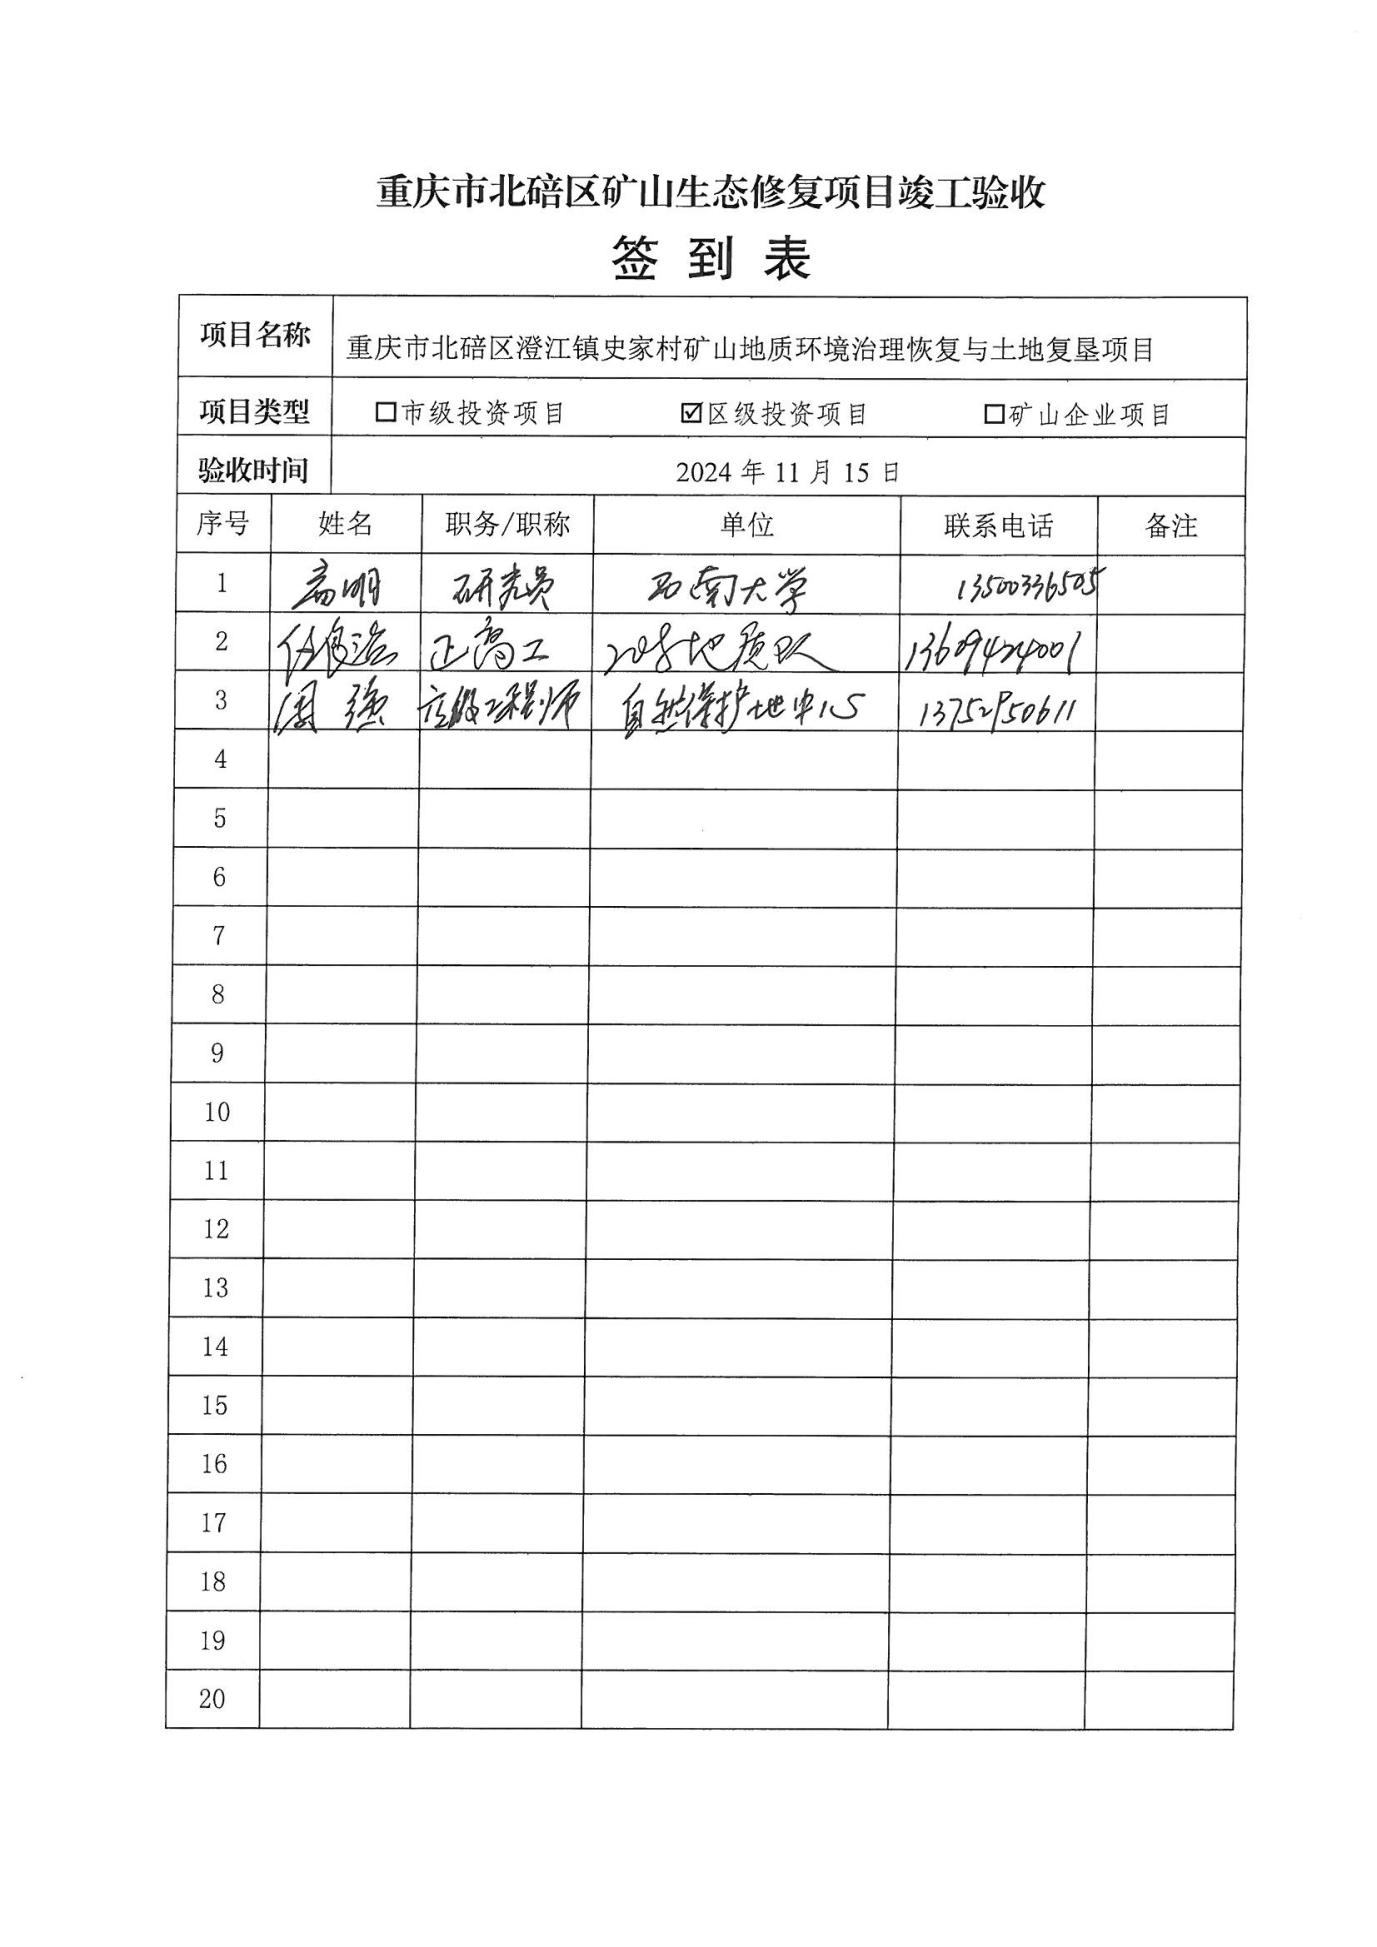 重庆市北碚区矿山生态修复项目竣工验收
签到表
项目名称 重庆市北碚区澄江镇史家村矿山地质环境治理恢复与土地复垦项目
项目类型 □市级投资项目 ☑区级投资项目 □矿山企业项目
验收时间 2024年11月15日
序号 姓名 职务/职称 单位 联系电话 备注
1 高明 研究员 西南大学 13500336505
2 正高工 208地质队 13609424001
3 周强 高级工程师 自然保护地中心 13752950611
4
5
6
7
8
9
10
11
12
13
14
15
16
17
18
19
20